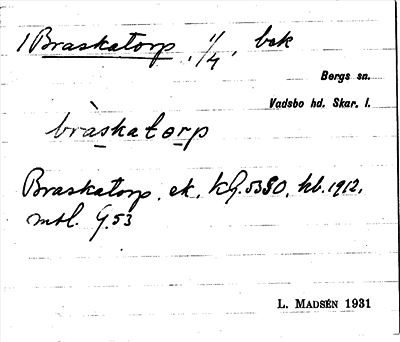 1 Braskatorp, 1/4, bek
Bergs sn.
Vadsbo hd. Skar. l.
bràskatorp
Braskatorp. ek. kG. 53SO, hb. 1912,
mtl. G. 53
L. MADSÉN 1931